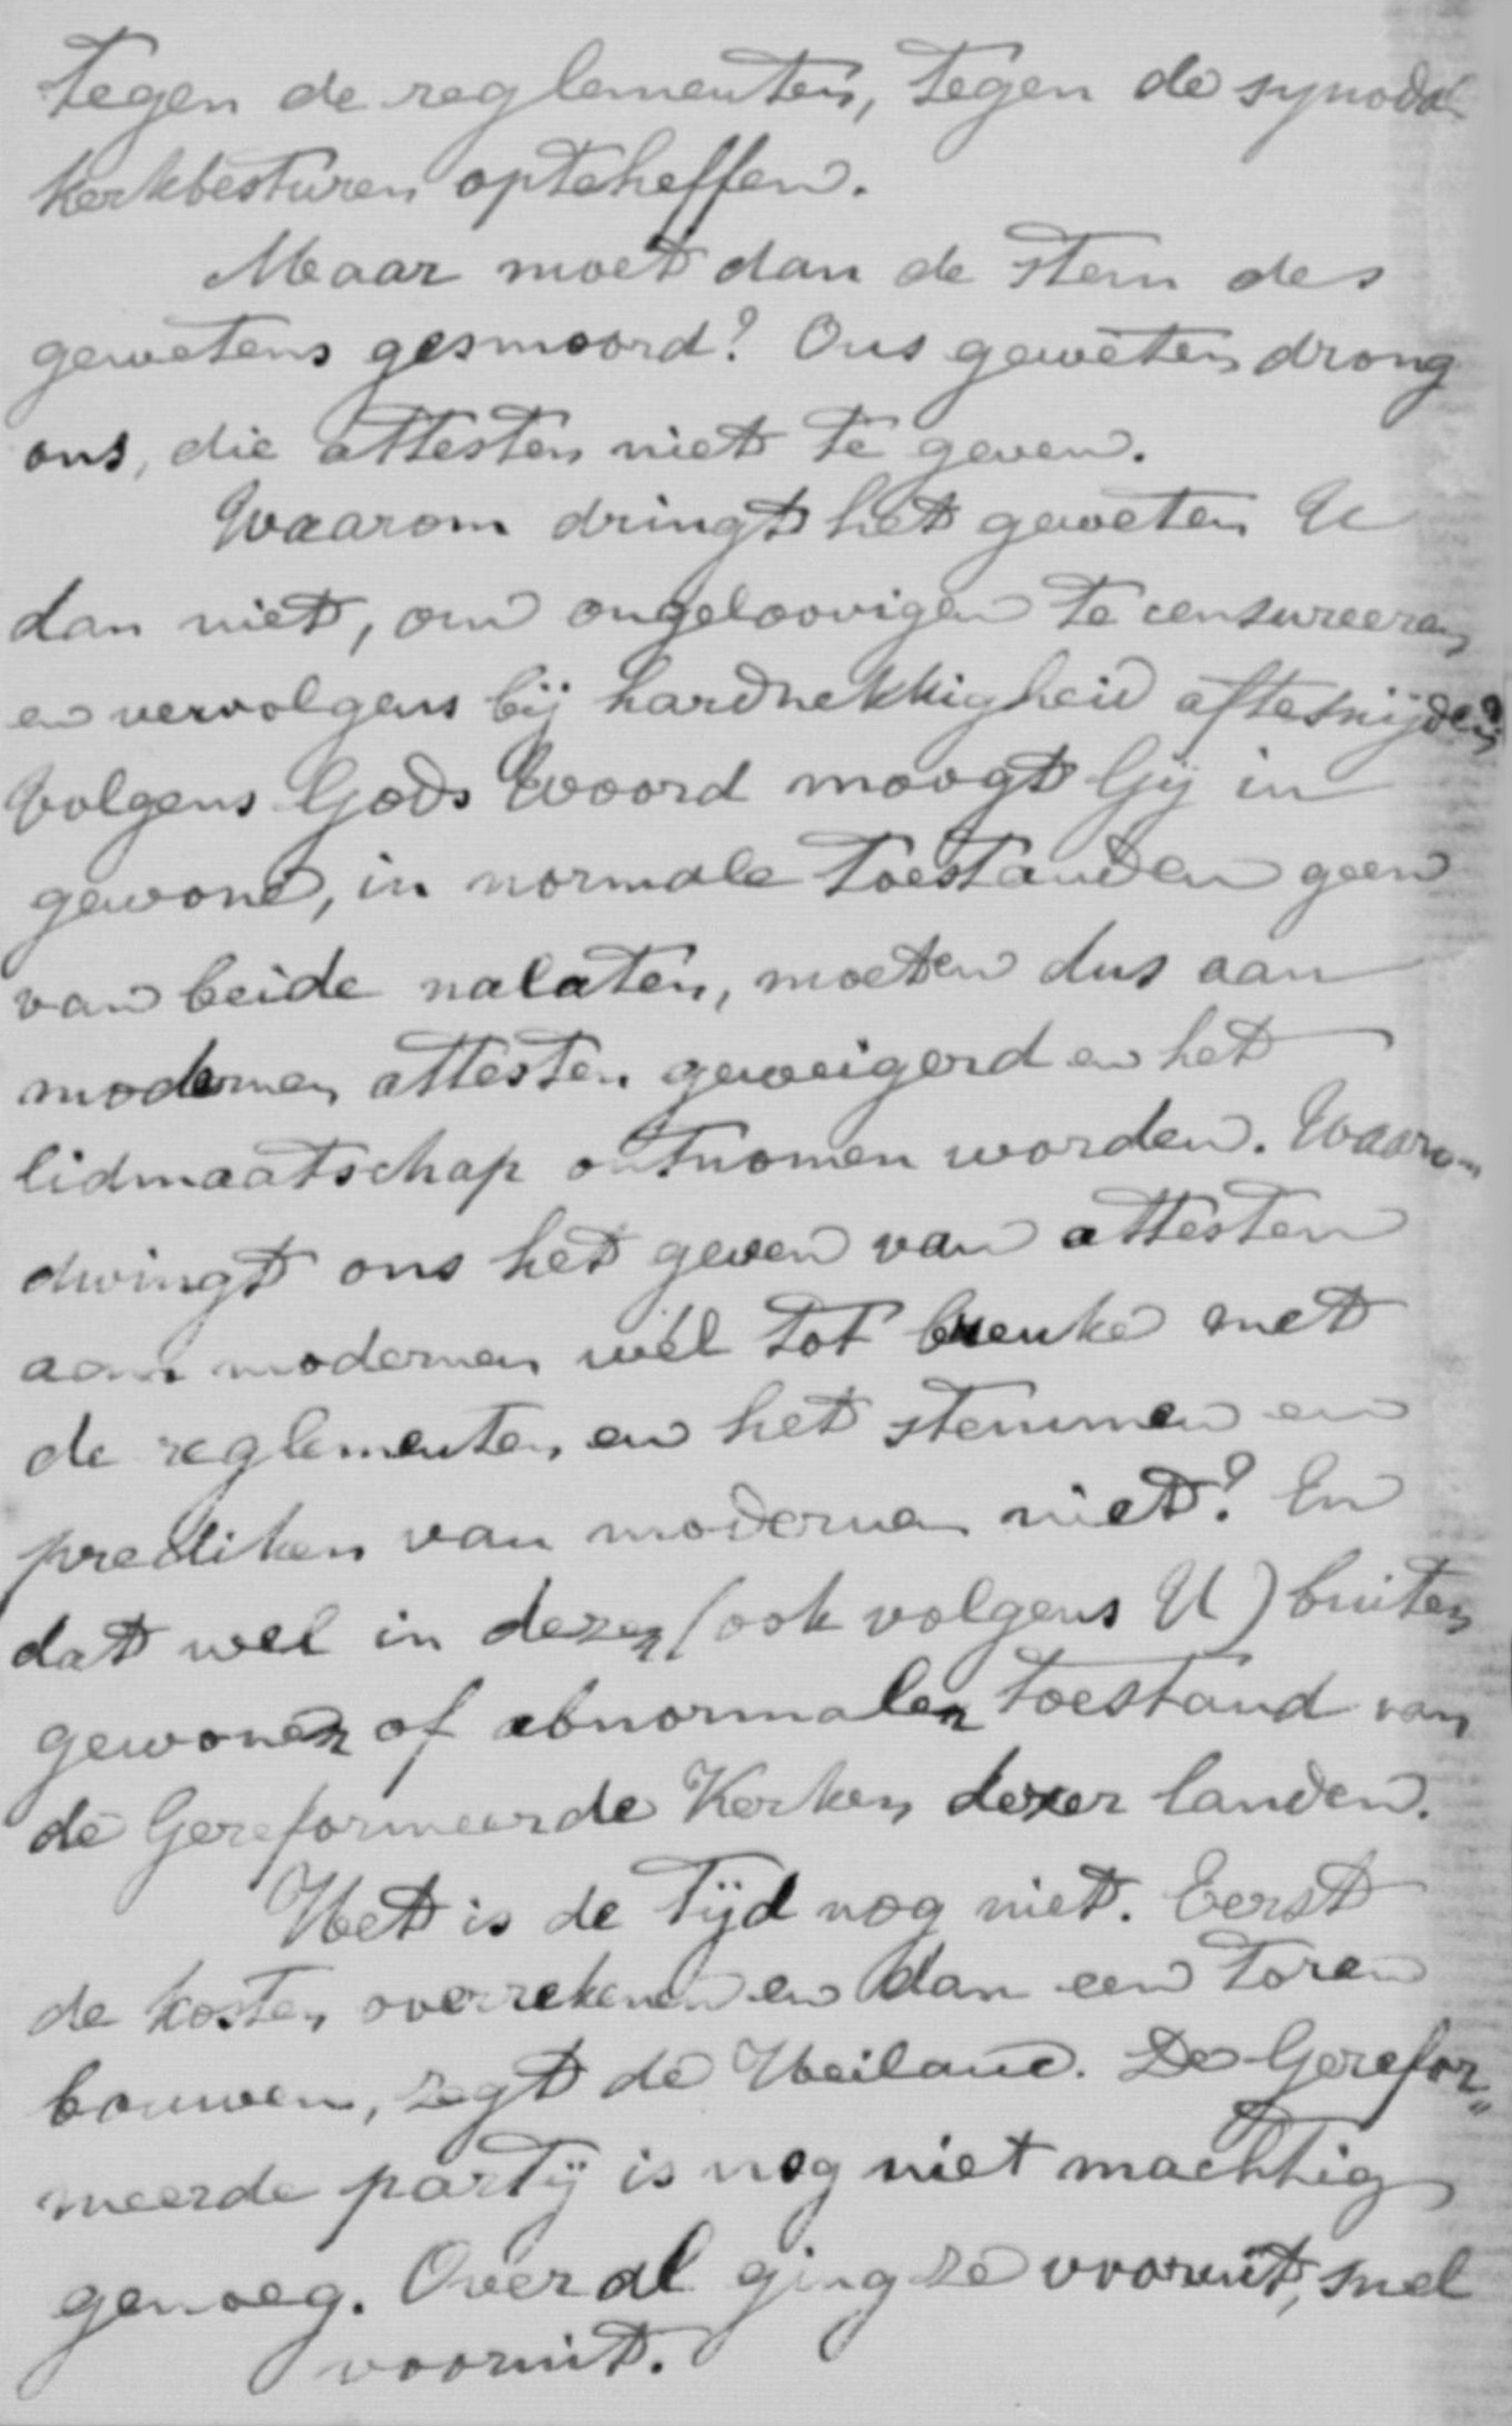 tegen de reglementen, tegen de synodal
kerkbesturen opteheffen.
Maar moet dan de stem des
gewetens gesmoord? Ons geweten drong
ons, die attesten niet te geven.
Waarom dringt het geweten U
dan niet, om ongeloovigen te censureeren
en vervolgens bij hardnekkigheid aftesnijden?
Volgens Gods Woord moogt Gij in
gewone, in normale toestanden geen
van beide nalaten, moeten dus aan
modernen attesten geweigerd en het
lidmaatschap ontnomen worden. Waarom
dwingt ons het geven van attesten
aan modernen wél tot breuke met
de reglementen en het stemmen en
prediken van modernen niet? En
dat wel in dezen (ook volgens U) buiten
gewonen of abnormalen toestand van
de Gereformeerde Kerken dezer landen.
Het is de tijd nog niet. Eerst
de kosten overrekenen en dan een toren
bouwen, zegt de Heiland. De Gerefor„
meerde partij is nog niet machtig
genoeg. Overal ging ze vooruit, snel
vooruit.